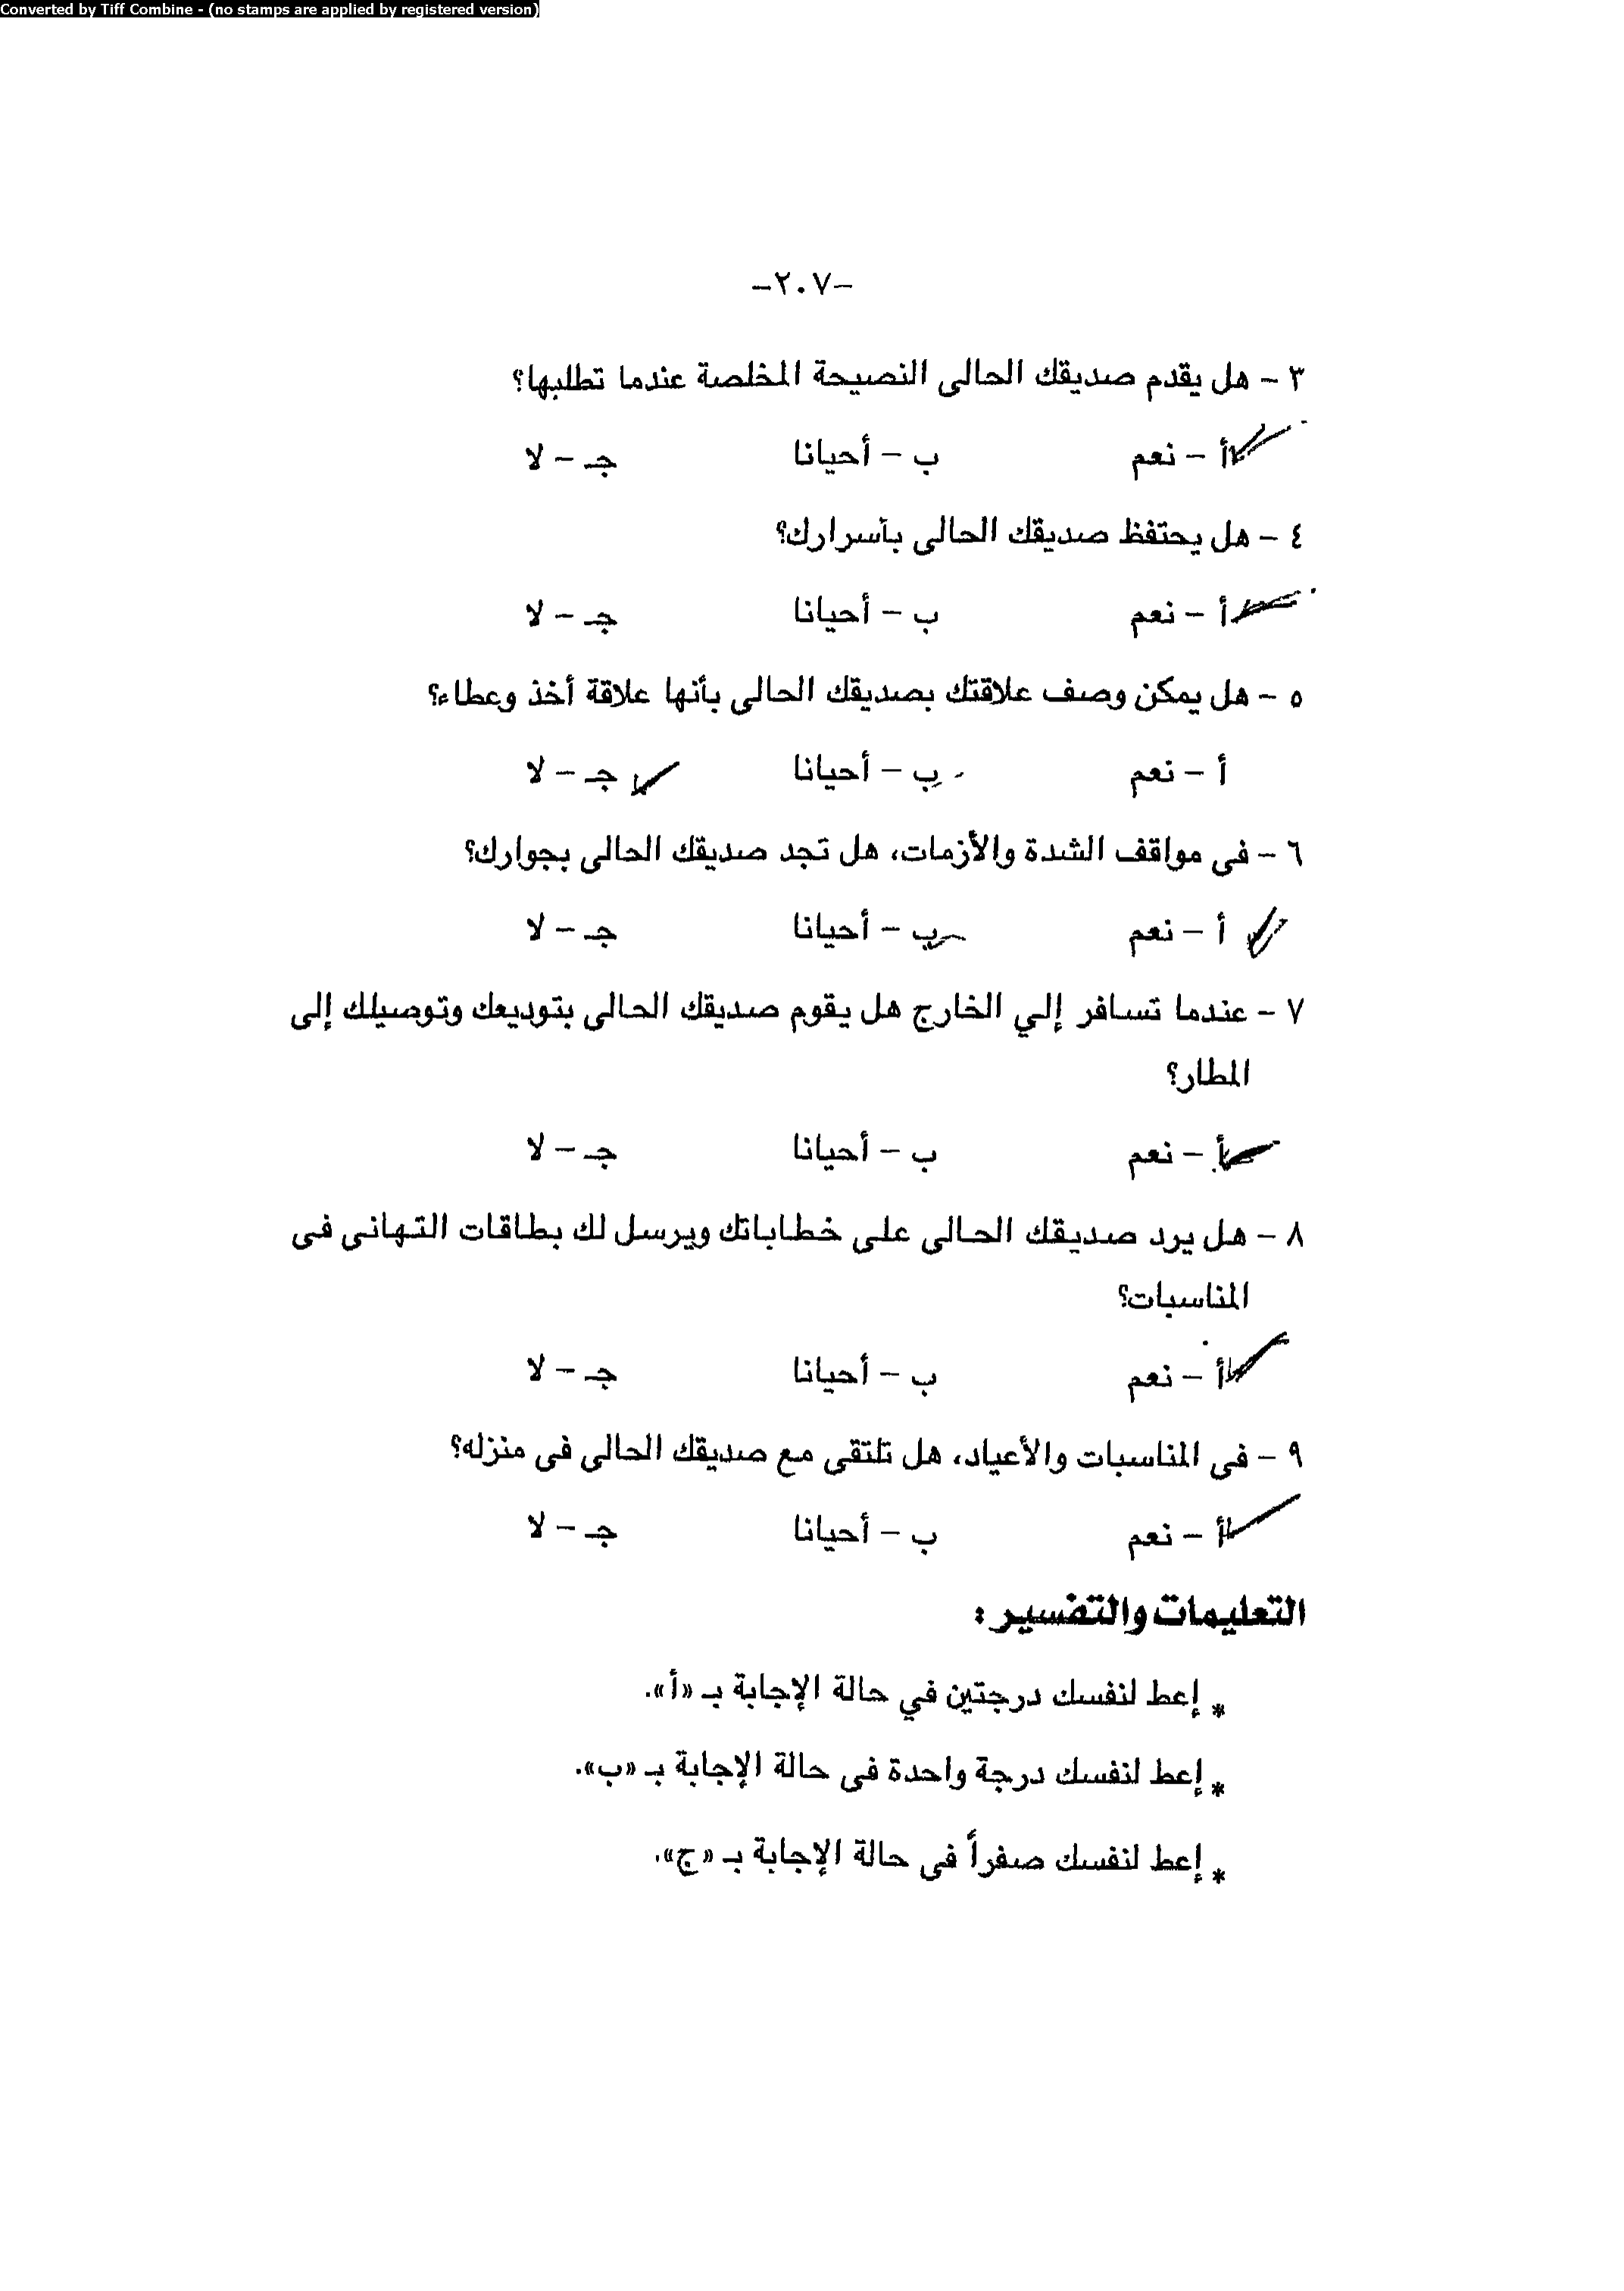 Converted by Tiff Combine - (no stamps are applied by registered version)
-٢٠٧-
٣ - هل يقدم صديقك الحالى النصيحة المخلصة عندما تطلبها؟
أ - نعم ب - أحيانا جـ - لا
٤ - هل يحتفظ صديقك الحالى بأسرارك؟
أ - نعم ب - أحيانا جـ - لا
٥ - هل يمكن وصف علاقتك بصديقك الحالى بأنها علاقة أخذ وعطاء؟
أ - نعم ب - أحيانا جـ - لا
٦ - فى مواقف الشدة والأزمات، هل تجد صديقك الحالى بجوارك؟
أ - نعم ب - أحيانا جـ - لا
٧ - عندما تسافر إلي الخارج هل يقوم صديقك الحالى بتوديعك وتوصيلك إلى
المطار؟
أ - نعم ب - أحيانا جـ - لا
٨ - هل يرد صديقك الحالى على خطاباتك ويرسل لك بطاقات التهانى فى
المناسبات؟
أ - نعم ب - أحيانا جـ - لا
٩ - فى المناسبات والأعياد، هل تلتقى مع صديقك الحالى فى منزله؟
أ - نعم ب - أحيانا جـ - لا
التعليمات والتفسير :
* إعط لنفسك درجتين في حالة الإجابة بـ «أ».
* إعط لنفسك درجة واحدة فى حالة الإجابة بـ «ب».
* إعط لنفسك صفراً فى حالة الإجابة بـ «ج».